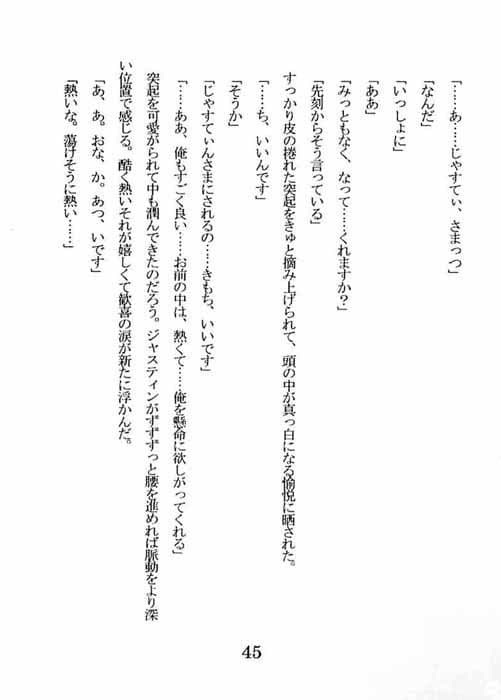 「……あ……じゃすてぃ、さまっつ」
「なんだ」
「いっしょに」
「ああ」
「みっともなく、なって……くれますか？」
「先刻からそう言っている」
すっかり皮の捲れた突起をきゅと摘み上げられて、頭の中が真っ白になる愉悦に晒された。
「……ち、いいんです」
「そうか」
「じゃすてぃんさまにされるの……きもち、いいです」
「……ああ、俺もすごく良い……お前の中は、熱くて……俺を懸命に欲しがってくれる」
突起を可愛がられて中も潤んできたのだろう。ジャスティンがずずずっと腰を進めれば脈動をより深
い位置で感じる。酷く熱いそれが嬉しくて歓喜の涙が新たに浮かんだ。
「あ、あ。おな、か。あつ、いです」
「熱いな。蕩けそうに熱い……」
45